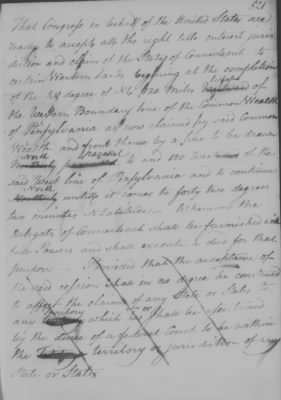 521
That Congress in behalf of the United States are
ready to accept all the right title interest juris
diction and claim of the State of Connecticut to
certain Western Lands beginning at the completion
of the 41 degree of N L. 120 miles West of
the Western Boundary line of the Common Wealth
of Pensylvania as now claimed by said Common
Wealth and from thence by a line to be drawn
North parallel to and 120 West of the
said West line of Pensylvania and to continue
North untill it comes to forty two degrees
two minutes N Latitude. Whereupon the
Delegates of Connecticut shall be furnished with
full Powers and shall execute a deed for that
purpose Provided that the acceptance of
the said cession shall in no degree be construed
to affect the claims of any State or States to
any territory which is or shall be ascertained
by the decree of a federal Court to be within
the territory or jurisdiction of any
State or States